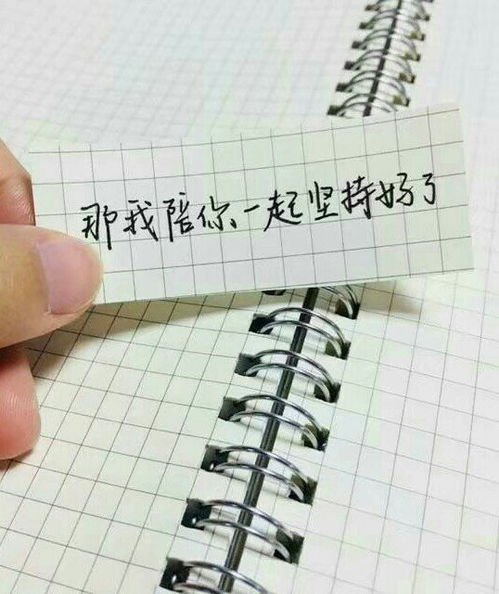 那我陪你一起坚持好了